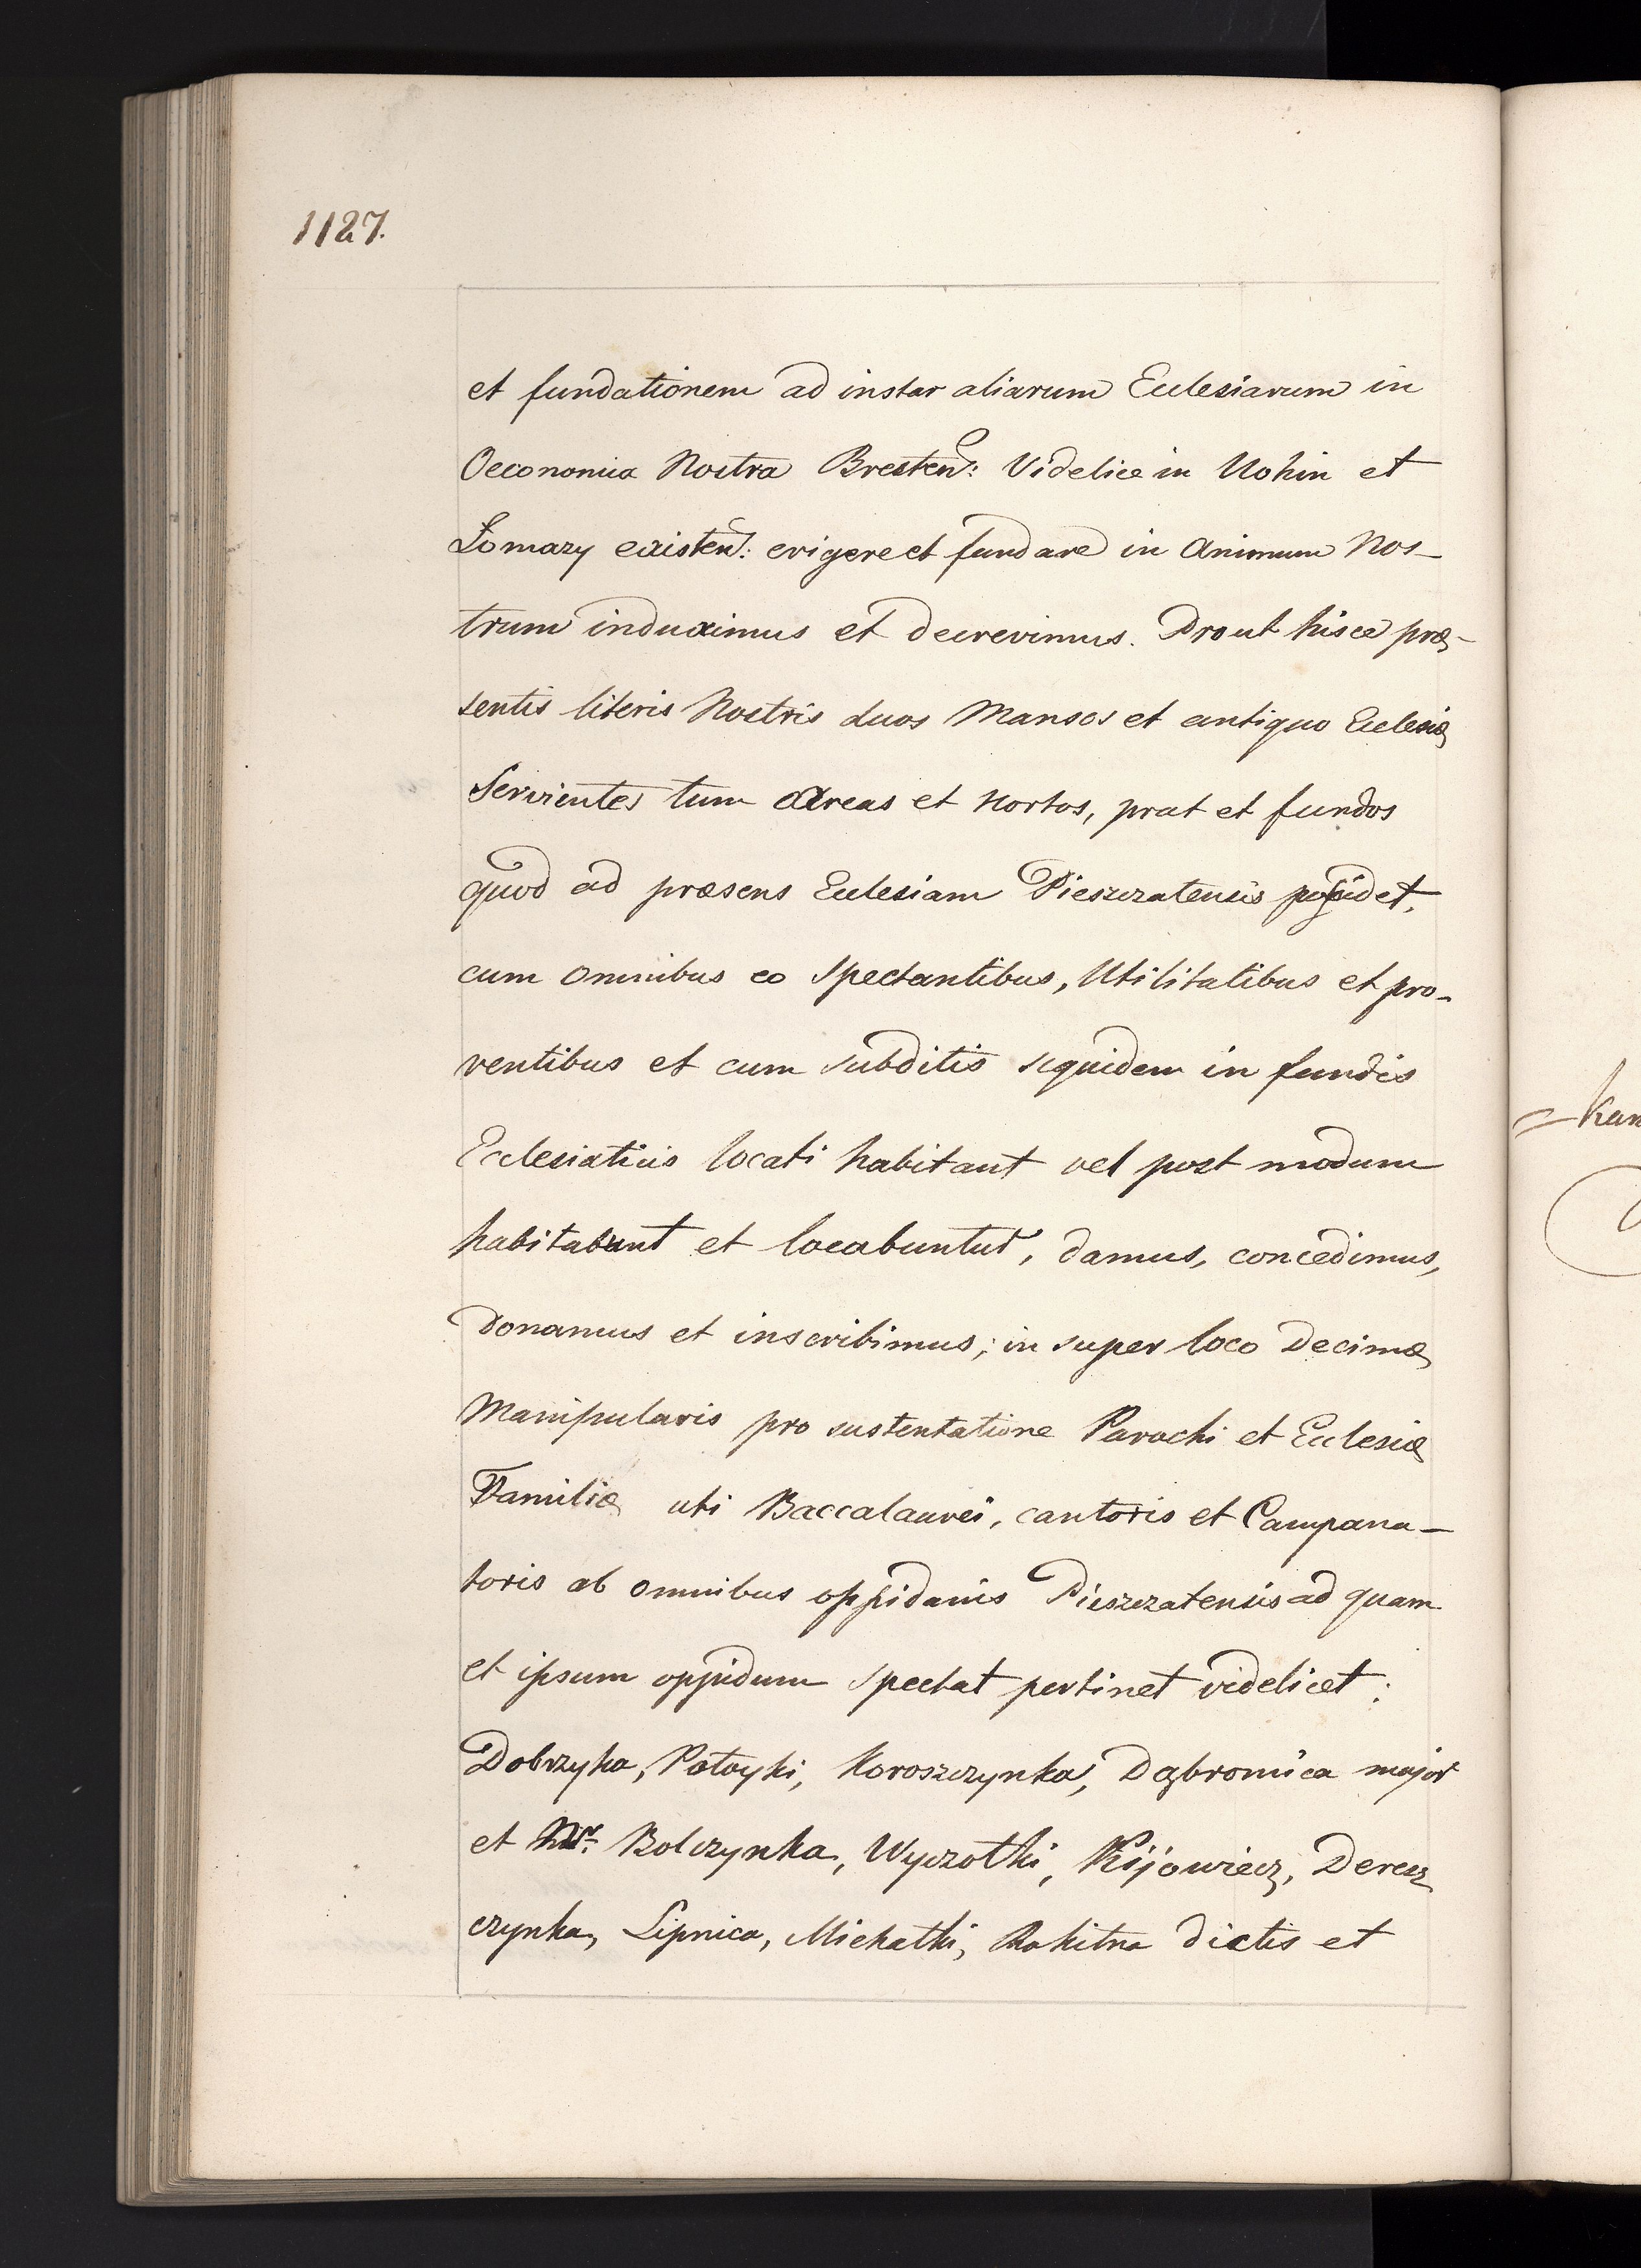 1127.
et fundationem ad instar aliarum Ecclesiarum in
Oeconomia Nostra Bresten: Videlice in Wohin et
Łomazy existen: erigere et fundare in Animum Nos-
trum induximus et decrevimus. Prout hisce præ-
sentis literis Nostris duos Mansos et antiquo Ecclesiæ
Servientes tum Areas et Hortos, prat et fundos
quod ad præsens Ecclesiam Pieszczatensis possidet,
cum omnibus eo spectantibus, Utilitatibus et pro-
ventibus et cum subditis siquidem in fundis
Ecclesiaticis locati habitant vel post modum
habitabunt et locabuntur, damus, concedimus,
donamus et inscribimus; in super loco Decimæ
Manipularis pro sustentatione Parochi et Ecclesiæ
Familiæ uti Baccalaurei, cantoris et Campana-
toris ab omnibus oppidanis Pieszczatensis ad quam
et ipsum oppidum spectat pertinet videlicet:
Dobrzyka, Połoyki, Koroszczynka, Dąbrowica major
et Mr. Bolczynka, Wyczołki, Kijowiecz, Deresz
czynka, Lipnica, Michałki, Rokitna dictis et